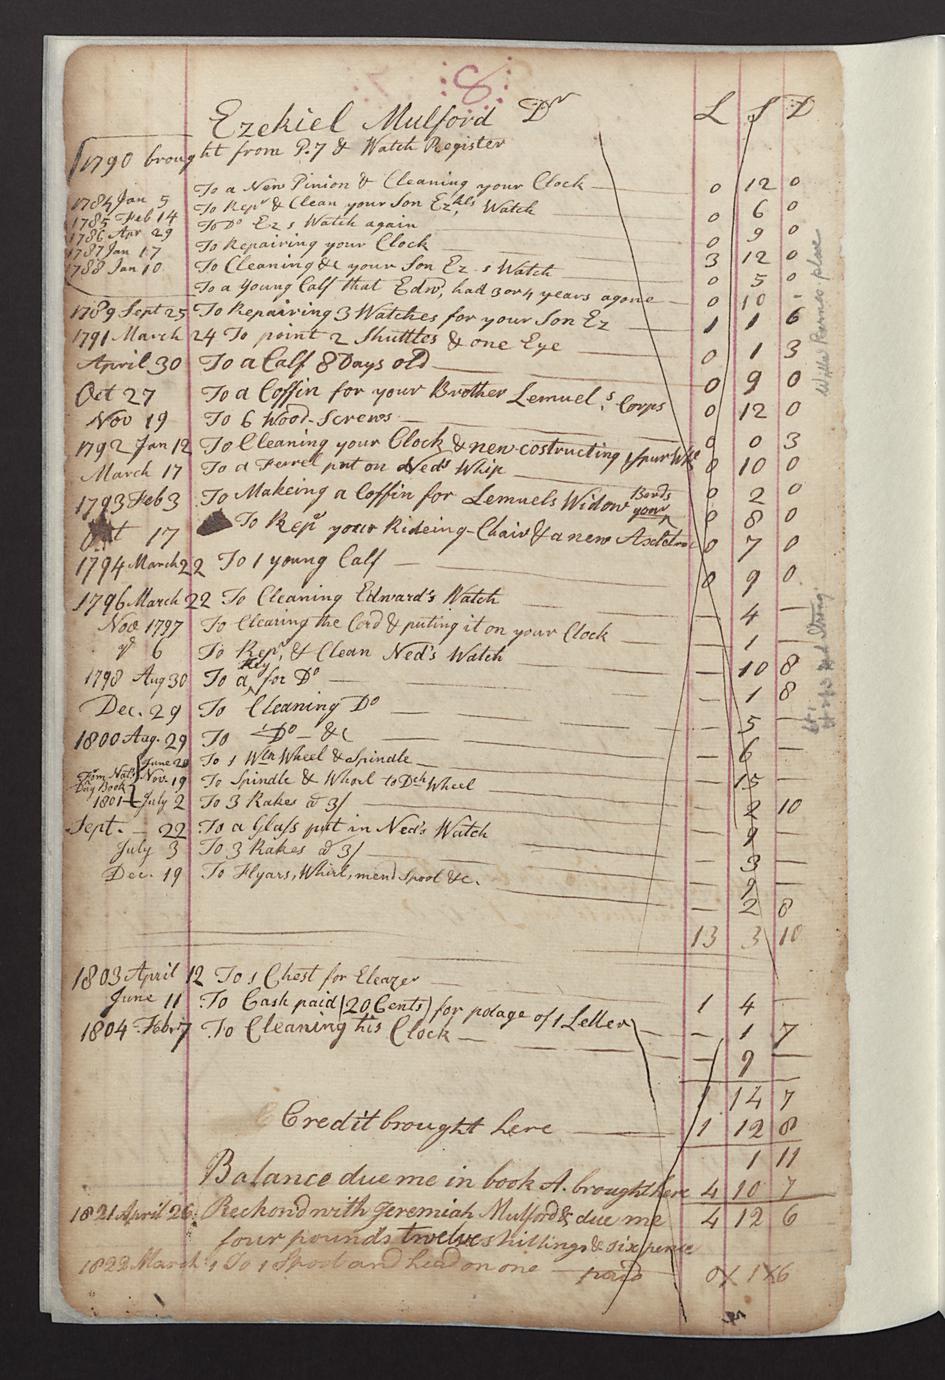 8
Ezekiel Mulford Dr L S D
1790 brought from P.7 & Watch Register
To a New Pinion & Cleaning your Clock 0 12 0
1784 Jan 5 To Repr & Clean your Son Ezkls Watch 0 6 0
1785 Feb 14 To Do Ez s Watch again 0 9 0
1786 Apr 29 To Repairing your Clock 3 12 0
1787 Jan 17 To Cleaning &c your Son Ez s Watch 0 5 0
1788 Jan 10 To a Young Calf that Edwd, had 3 or 4 years agone 0 10 -
1789 Sept 25 To Repairing 3 Watches for your Son Ez 1 1 6
1791 March 24 To point 2 Shuttles & one Eye 0 1 3
April 30 To a Calf 8 Days old 0 9 0
Oct 27 To a Coffin for your Brother Lemuel,s Corps 0 12 0
Nov 19 To 6 Wood-Screws 0 0 3
1792 Jan 12 To Cleaning your Clock & new costructing 1 Spur Whl 0 10 0
March 17 To a Ferrel put on Ned's Whip 0 2 0
1793 Feb 3 To Makeing a Coffin for Lemuels Widow your Bords 0 8 0
Oct 17 To Repr your Rideing-Chair & a new Axletree 0 7 0
1794 March 22 To 1 young Calf 0 9 0
1796 March 22 To Cleaning Edward's Watch — 4 —
Nov 1797 To Clearing the Cord & puting it on your Clock — 1 —
6 To Repr, & Clean Ned's Watch — 10 8
1798 Aug 30 To a Key for Do — 1 8
Dec. 29 To Cleaning Do — 5 —
1800 Aug. 29 To Do — &c — 6 —
June 20 To 1 Wln Wheel & Spindle — 15 —
From Nat's Day Book Nov. 19 To Spindle & Whorl to Dch Wheel — 2 10
1801 July 2 To 3 Rakes @ 3/ — 9 —
Sept. 22 To a Glass put in Ned's Watch — 3 —
July 3 To 3 Rakes @ 3/ — 9 —
Dec. 19 To Flyars, Whirl, mend Spool &c. — 2 8
13 3 10
1803 April 12 To 1 Chest for Eleazer 1 4 —
June 11 To Cash paid (20 Cents) for potage of 1 Letter — 1 7
1804 Febr 7 To Cleaning his Clock — 9 —
1 14 7
Credit brought here 1 12 8
1 11
Balance due me in book A. brought here 4 10 7
1821 April 26 Reckond with Jeremiah Mulford & due me 4 12 6
four pounds twelve shillings & six pence
1822 March 1 To 1 Spool and head on one paid 0 x 1 x 6